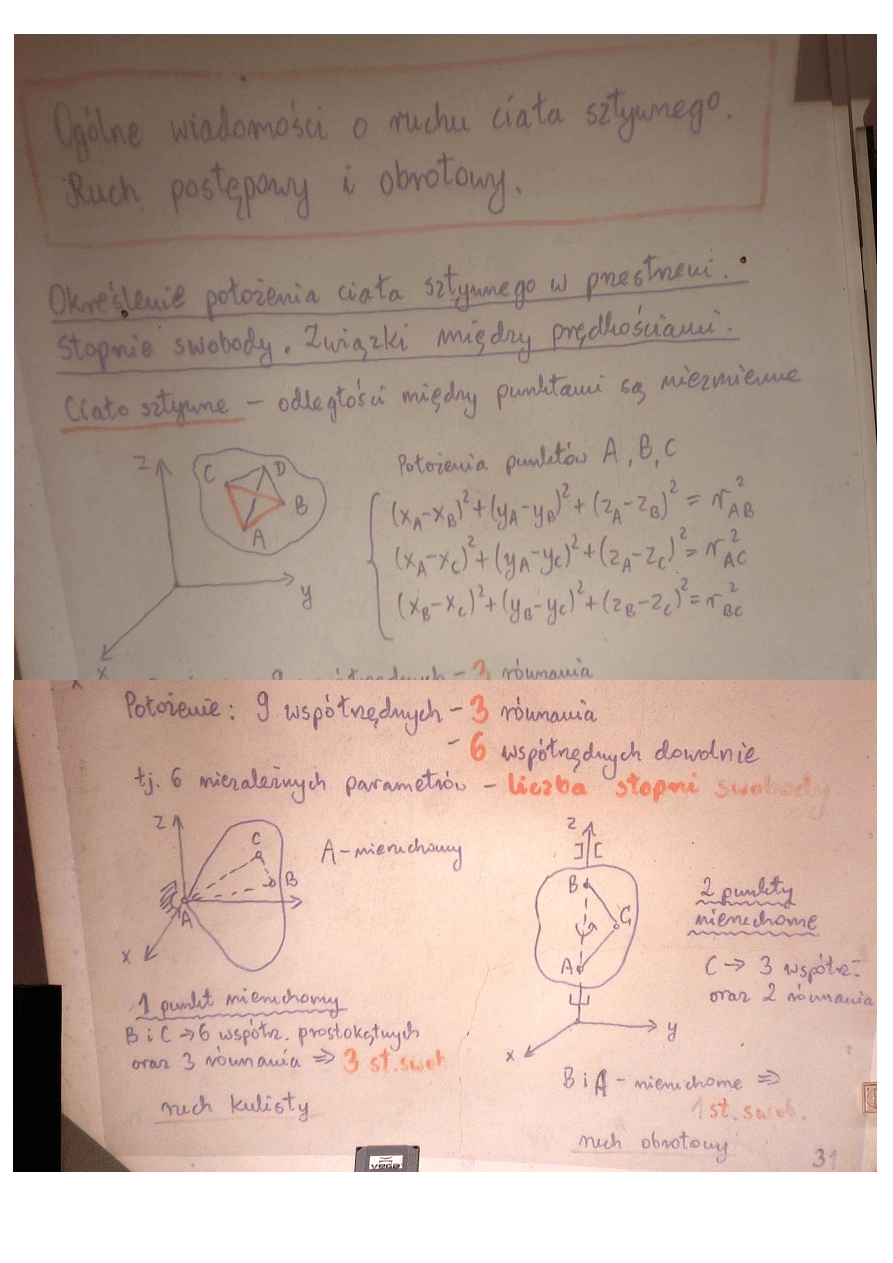 Ogólne wiadomości o ruchu ciała sztywnego.
Ruch postępowy i obrotowy.
Określenie położenia ciała sztywnego w przestrzeni.
Stopnie swobody. Związki między prędkościami.
Ciało sztywne – odległości między punktami są niezmienne
Z
C
D
B
A
y
x
Położenia punktów A, B, C
(x_A-x_B)²+(y_A-y_B)²+(z_A-z_B)² = r_AB²
(x_A-x_C)²+(y_A-y_C)²+(z_A-z_C)² = r_AC²
(x_B-x_C)²+(y_B-y_C)²+(z_B-z_C)² = r_BC²
– 3 równania
Położenie: 9 współrzędnych – 3 równania
– 6 współrzędnych dowolnie
tj. 6 niezależnych parametrów – liczba stopni swobody
z
C
B
A
x
A – nieruchomy
1 punkt nieruchomy
B i C → 6 współrz. prostokątnych
oraz 3 równania ⇒ 3 st. swob
ruch kulisty
z
B
C
A
y
x
2 punkty
nieruchome
C → 3 współrz.
oraz 2 równania
B i A – nieruchome ⇒
1 st. swob.
ruch obrotowy
31
VEGA